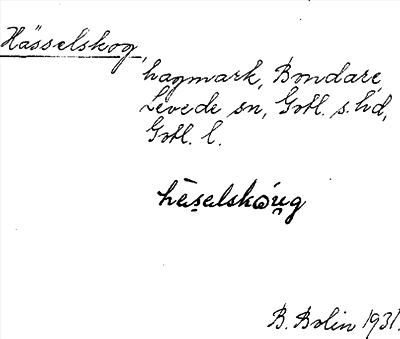 Hässelskog,
hagmark, Bondare,
Levede sn, Gotl. s. hd,
Gotl. l.
hèselskóug
B. Bolin 1931.